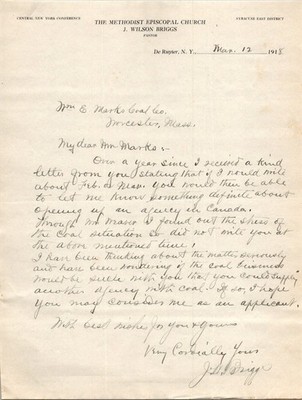 CENTRAL NEW YORK CONFERENCE
SYRACUSE EAST DISTRICT
THE METHODIST EPISCOPAL CHURCH
J. WILSON BRIGGS
PASTOR
De Ruyter, N. Y. Mar. 12 1918
Wm E Marks Coal Co.
Worcester, Mass.
My dear Mr Marks:-
Over a year since I received a kind
letter from you stating that if I would write
about Feb. or Mar. you would then be able
to let me know something definite about
opening up an agency in Canada.
Through Mr I found out the stress of
the coal situation so did not write you at
the above mentioned time.
I have been thinking about the matter seriously
and have been wondering if the coal business
would be such with you that you could supply
another agency with coal. If so, I hope
you may consider me as an applicant.
With best wishes for you & yours
Very Cordially Yours
J. W. Briggs